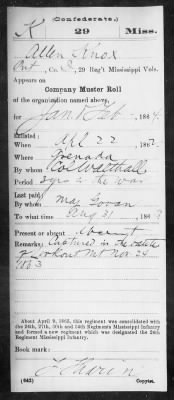 (Confederate.)
K 29 Miss.
Allen Knox
Pvt, Co. K, 29 Reg't Mississippi Vols.
Appears on
Company Muster Roll
of the organization named above,
for Jan & Feb, 1864.
Enlisted:
When Apl 22, 186
Where Grenada
By whom Col Walthall
Period 3 yrs or the war
Last paid:
By whom Maj Govan
To what time Aug 31, 1863
Present or absent absent
Remarks: Captured in the battle
of Lookout Mt Nov 24
1863
About April 9, 1865, this regiment was consolidated with
the 24th, 27th, 30th and 34th Regiments Mississippi Infantry
and formed a new regiment which was designated the 24th
Regiment Mississippi Infantry.
Book mark:
(642) Copyist.